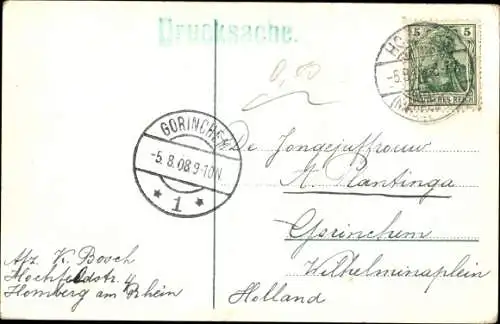 Drucksache.
5 5
DEUTSCHES REICH
-5.8.08
0,50
GORINCHEM
-5.8.08.9-10N.
* 1 *
De Jongejuffrouw
A. Plantinga
Gorinchem
Wilhelminaplein
Holland
Afz. K. Booch
Hochfeldstr. 4
Homberg am Rhein